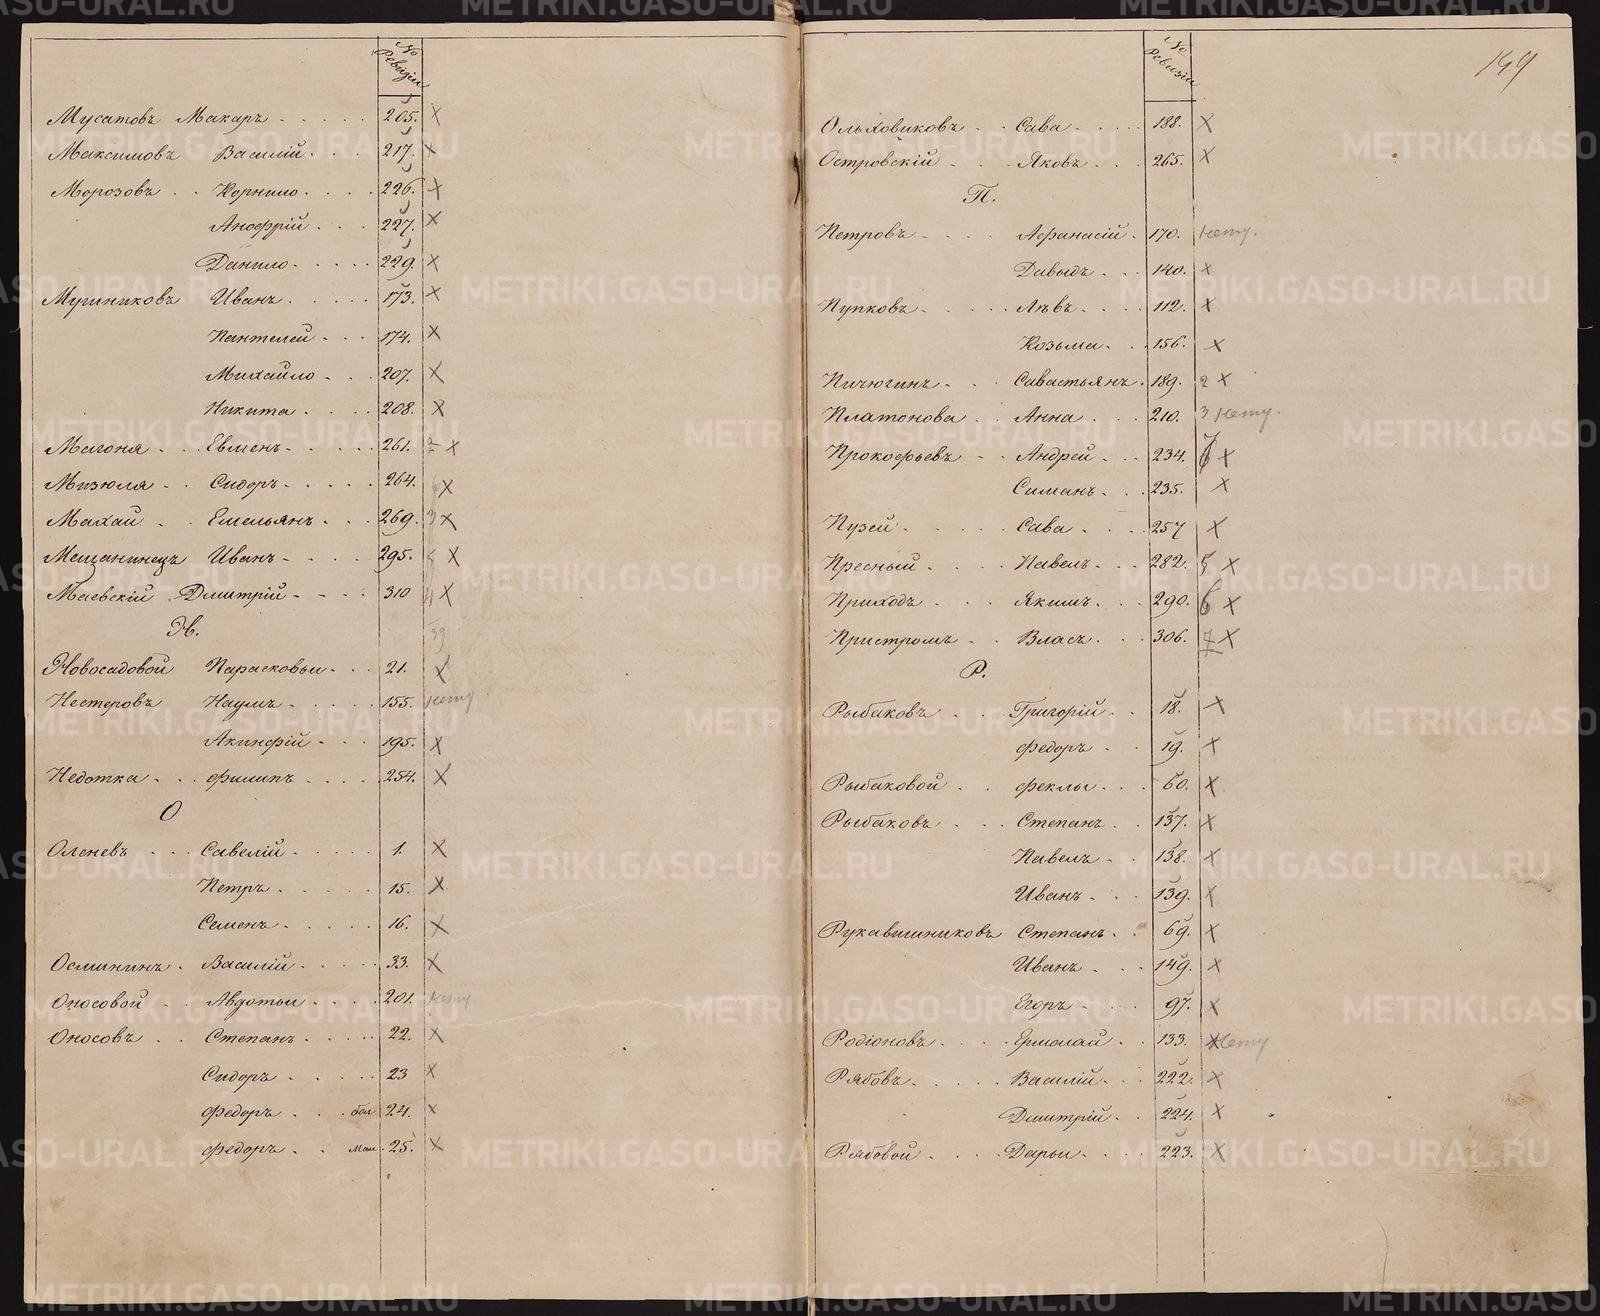 № Ревизіи
Мусатовъ Макаръ 205. ×
Максимовъ Василій 217. ×
Морозовъ Корнило 226. ×
Анофрій 227. ×
Данило 229. ×
Мушниковъ Иванъ 173. ×
Пантелей 174. ×
Михайло 207. ×
Никита 208. ×
Магоня Евменъ 261. 2 ×
Мизюля Сидоръ 264. ×
Махай Емельянъ 269. 3 ×
Мещанинецъ Иванъ 295. ×
Маевскій Дмитрій 310 4 ×
Н. 39
Новосадовой Парасковьи 21. ×
Нестеровъ Наумъ 155. нету
Акинфій 195. ×
Недотка Филипъ 254. ×
О
Оленевъ Савелій 1. ×
Петръ 15. ×
Семенъ 16. ×
Осмининъ Василій 33. ×
Оносовой Авдотьи 201. нету
Оносовъ Степанъ 22. ×
Сидоръ 23 ×
Федоръ бол 24. ×
Федоръ мал. 25. ×
149
№ Ревизіи
Ольховиковъ Сава 188. ×
Островскій Яковъ 265. ×
П.
Петровъ Афанасій 170. нету.
Давыдъ 140. ×
Пупковъ Лѣвъ 112. ×
Козьма 156. ×
Пичюгинъ Савастьянъ 189. 2 ×
Платонова Анна 210. 3 нету.
Прокофьевъ Андрей 234. ×
Симанъ 235. ×
Пузей Сава 257 ×
Пресный Павелъ 282. 5 ×
Приходъ Якимъ 290. 6 ×
Пристромъ Власъ 306. 7 ×
Р.
Рыбаковъ Григорій 18. ×
Федоръ 19. ×
Рыбаковой Феклы 60. ×
Рыбаковъ Степанъ 137. ×
Павелъ 138. ×
Иванъ 139. ×
Рукавишниковъ Степанъ 69. ×
Иванъ 149. ×
Егоръ 97. ×
Родіоновъ Ермолай 133. × нету
Рябовъ Василій 222. ×
Дмитрій 224. ×
Рябовой Дарьи 223. ×
METRIKI.GASO-URAL.RU